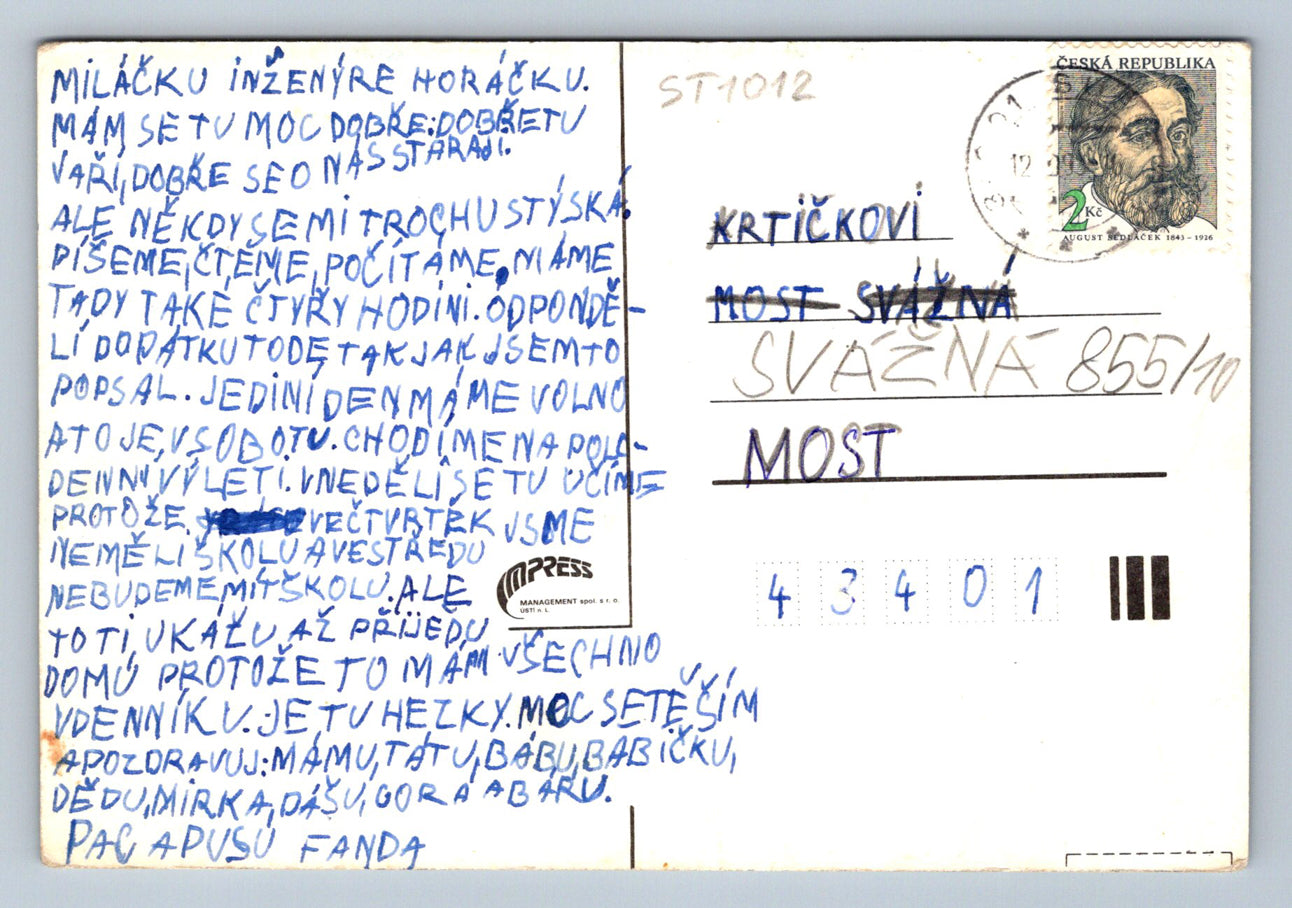 MILÁČKU INŽENÝRE HORÁČKU.
MÁM SE TU MOC DOBŘE: DOBŘE TU
VAŘÍ, DOBŘE SE O NÁS STARAJI.
ALE NĚKDY SE MI TROCHU STÝSKÁ.
PÍŠEME, ČTEME, POČÍTÁME, MÁME
TADY TAKÉ ČTYŘY HODINI. ODPONDĚ-
LÍ DOPÁTKU TO DE TAK JAK JSEM TO
POPSAL. JEDINÍ DEN MÁME VOLNO
A TO JE, V SOBOTU. CHODÍME NA POLO-
DENNI VÝLETI. V NEDĚLI SE TU UČÍME
PROTOŽE VE ČTVRTEK JSME
NEMĚLI ŠKOLU A VE STŘEDU
NEBUDEME MÍT ŠKOLU. ALE
TO TI, UKÁŽU, AŽ PŘIJEDU
DOMŮ PROTOŽE TO MÁM VŠECHNO
V DENNÍKU. JE TU HEZKY. MOC SE TĚŠÍM
A POZDRAVUJ: MÁMU, TÁTU, BÁBU, BABIČKU,
DĚDU, MIRKA, DÁŠU, GORA A BÁRU.
PAC A PUSU FANDA
IMPRESS
MANAGEMENT spol. s r. o.
ÚSTÍ n. L.
ST1012
ČESKÁ REPUBLIKA
2 Kč
AUGUST SEDLÁČEK 1843 – 1926
KRTIČKOVI
MOST SVÁŽNÁ
SVÁŽNÁ 855/10
MOST
43401